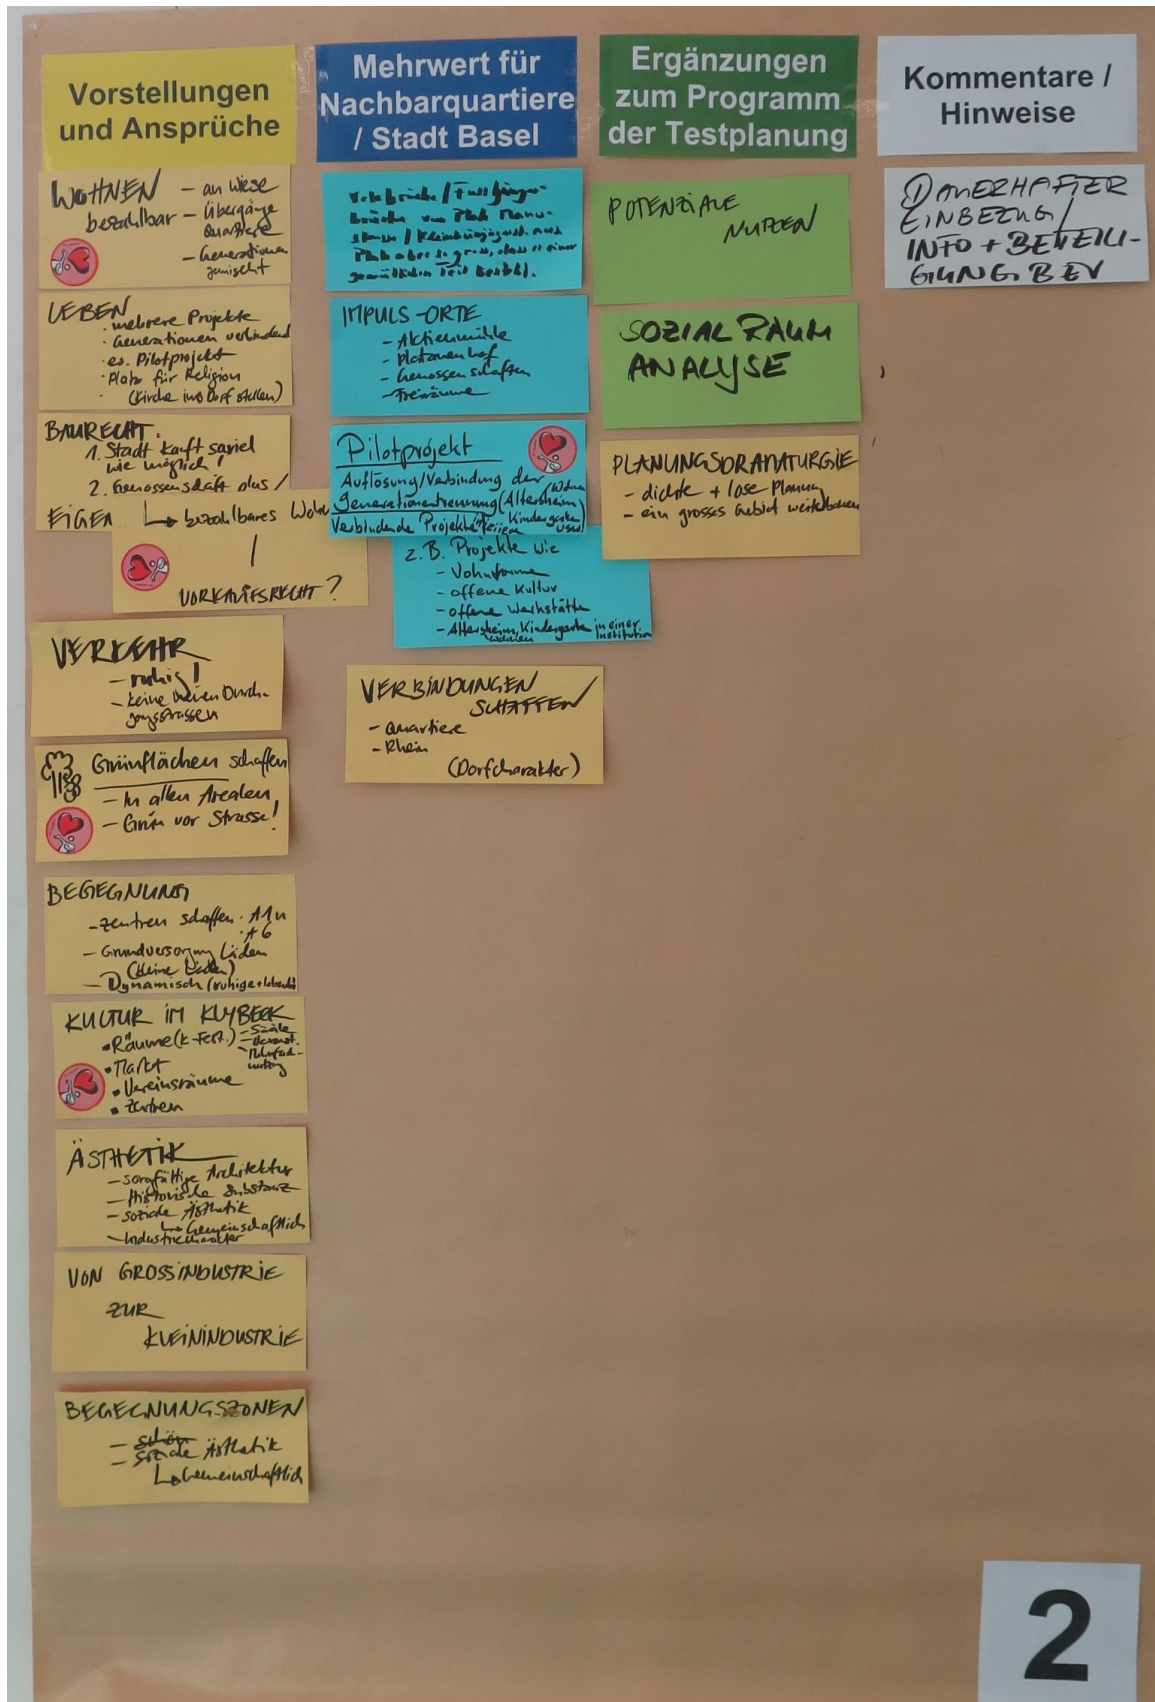 Vorstellungen
und Ansprüche
WOHNEN - an Wiese
bezahlbar - Übergänge
Quartiere
- Generationen
gemischt
LEBEN
· mehrere Projekte
· Generationen verbindend
· ev. Pilotprojekt
· Platz für Religion
(Kirche ins Dorf stellen)
BAURECHT.
1. Stadt kauft soviel
wie möglich!
2. Genossenschaft plus /
EIGEN
bezahlbares
VORKAUFSRECHT?
VERKEHR
- ruhig!
- keine neuen Durch-
gangsstrassen
Grünflächen schaffen
- In allen Arealen
- Grün vor Strasse!
BEGEGNUNG
- Zentren schaffen · A1n
· A6
- Grundversorgung Läden
(kleine Läden)
- Dynamisch (ruhige +
KULTUR IM KLYBECK
• Räume (K-Fest.) - Säle
• Markt
• Vereinsräume
• Zentren
ÄSTHETIK
- sorgfältige Architektur
- Historische Substanz
- soziale Ästhetik
Gemeinschaftlich
- Industriecharakter
VON GROSSINDUSTRIE
ZUR
KLEININDUSTRIE
BEGEGNUNGSZONEN
- schön
- soziale Ästhetik
Gemeinschaftlich
Mehrwert für
Nachbarquartiere
/ Stadt Basel
Velobrücke / Fussgänger-
gemütlichen Teil
IMPULS-ORTE
- Aktienmühle
- Platanenhof
- Genossenschaften
- Freiräume
Pilotprojekt
Auflösung/Verbindung der
Generationentrennung (Altersheim/
Kindergarten
usw
Verbindende Projekte
z.B. Projekte wie
- Wohnforme
- offene Kultur
- offene Werkstätte
- Altersheim, Kindergarten in einer
Institution
VERBINDUNGEN
SCHAFFEN
- Quartiere
- Rhein
(Dorfcharakter)
Ergänzungen
zum Programm
der Testplanung
POTENZIALE
NUTZEN
SOZIALRAUM
ANALYSE
PLANUNGSDRAMATURGIE
- dichte + lose Planung
- ein grosses Gebiet
Kommentare /
Hinweise
DAUERHAFTER
EINBEZUG /
INFO + BETEILI-
GUNG BEV
2